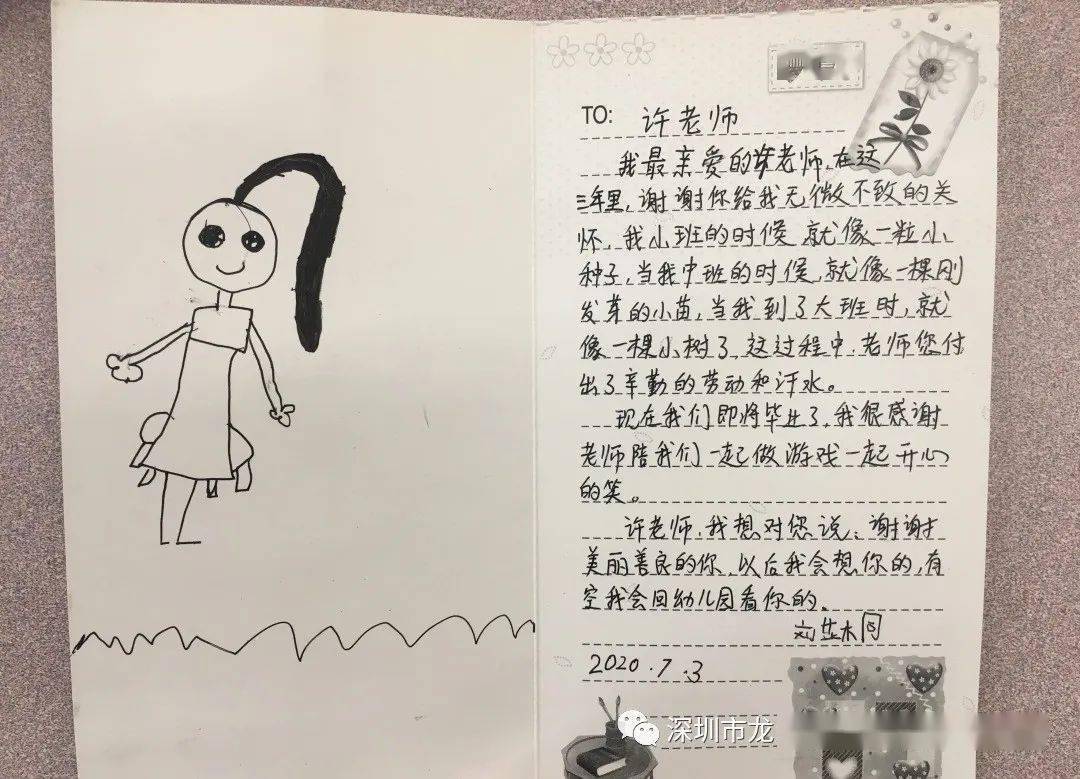 TO: 许老师
我最亲爱的许老师,在这
三年里,谢谢你给我无微不致的关
怀,我小班的时候,就像一粒小
种子,当我中班的时候,就像一棵刚
发芽的小苗,当我到了大班时,就
像一棵小树了,这过程中,老师您付
出了辛勤的劳动和汗水。
现在我们即将毕业了,我很感谢
老师陪我们一起做游戏一起开心
的笑。
许老师,我想对您说:谢谢
美丽善良的你,以后我会想你的,有
空我会回幼儿园看你的。
2020.7.3
深圳市龙